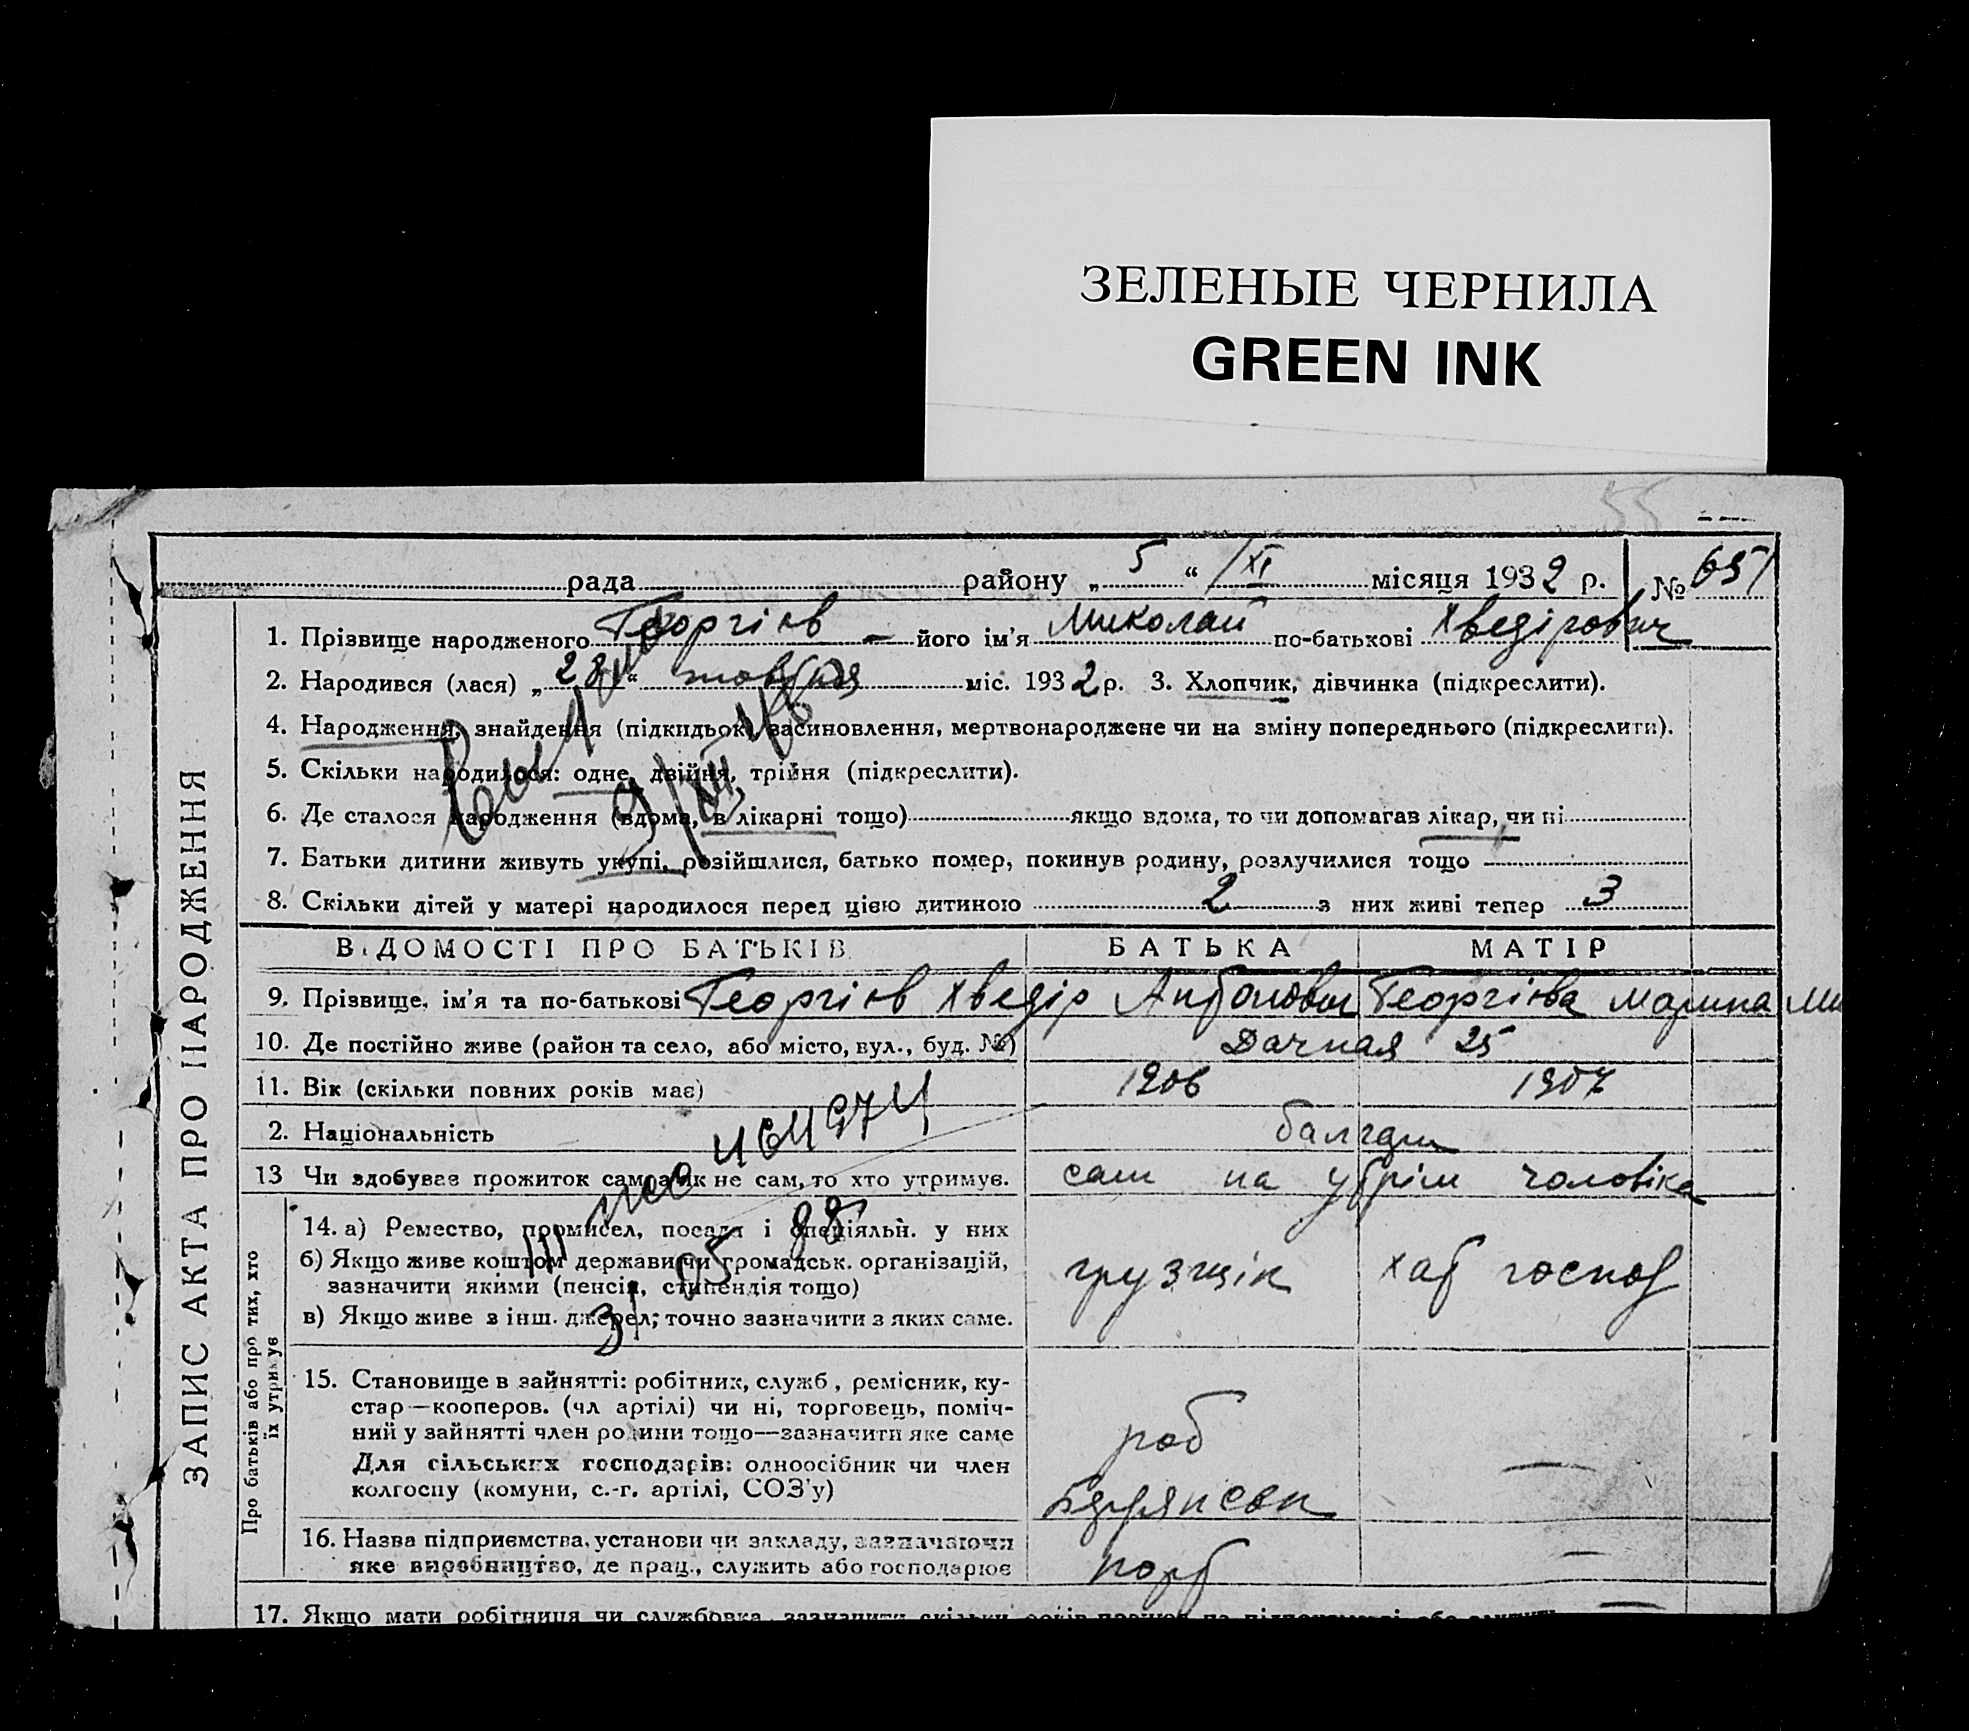 ЗЕЛЕНЫЕ ЧЕРНИЛА
GREEN INK
55
рада районy „ 5 “ XI місяця 1932 р. № 651
1. Прізвище народженого Георгіїв його ім’я Миколай по-батькові Хведірович
2. Народився (лася) „28“ жовтня міс. 1932 р. 3. Хлопчик, дівчинка (підкреслити).
4. Народження, знайдення (підкидьок) засиновлення, мертвонароджене чи на зміну попереднього (підкреслити).
5. Скільки народилося: одне, двійня, трійня (підкреслити).
6. Де сталося народження (вдома, в лікарні тощо) якщо вдома, то чи допомагав лікар, чи ні
7. Батьки дитини живуть укупі, розійшлися, батько помер, покинув родину, розлучилися тощо
8. Скільки дітей у матері народилося перед цією дитиною 2 з них живі тепер 3
ВІДОМОСТІ ПРО БАТЬКІВ БАТЬКА МАТІР
9. Прізвище, ім’я та по-батькові Георгіїв Хведір Антонович Георгіїва Марина Ми
10. Де постійно живе (район та село, або місто, вул., буд. №) Дачная 25
11. Вік (скільки повних років має) 1906 1907
2. Національність болгари
13 Чи здобуває прожиток сам, а як не сам, то хто утримує. сам на утрім чоловіка
14. а) Ремество, промисел, посада і спеціяльн. у них
б) Якщо живе коштом держави чи громадськ. організацій,
зазначити якими (пенсія, стипендія тощо) грузщік хат господ
в) Якщо живе з інш. джерел, точно зазначити з яких саме.
15. Становище в зайнятті: робітник, служб, ремісник, ку-
стар—кооперов. (чл артілі) чи ні, торговець, поміч-
ний у зайнятті член родини тощо—зазначити яке саме роб
Для сільських господарів: одноосібник чи член
колгоспу (комуни, с.-г. артілі, СОЗ'у)
16. Назва підприємства, установи чи закладу, зазначаючи
яке виробництво, де прац., служить або господарює порт
17. Якщо мати робітниця чи службовка, зазначити скільки років працює на підприємстві або
ЗАПИС АКТА ПРО НАРОДЖЕННЯ
Про батьків або про тих, хто
їх утримує